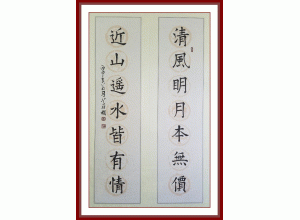 清風明月本無價
近山遙水皆有情